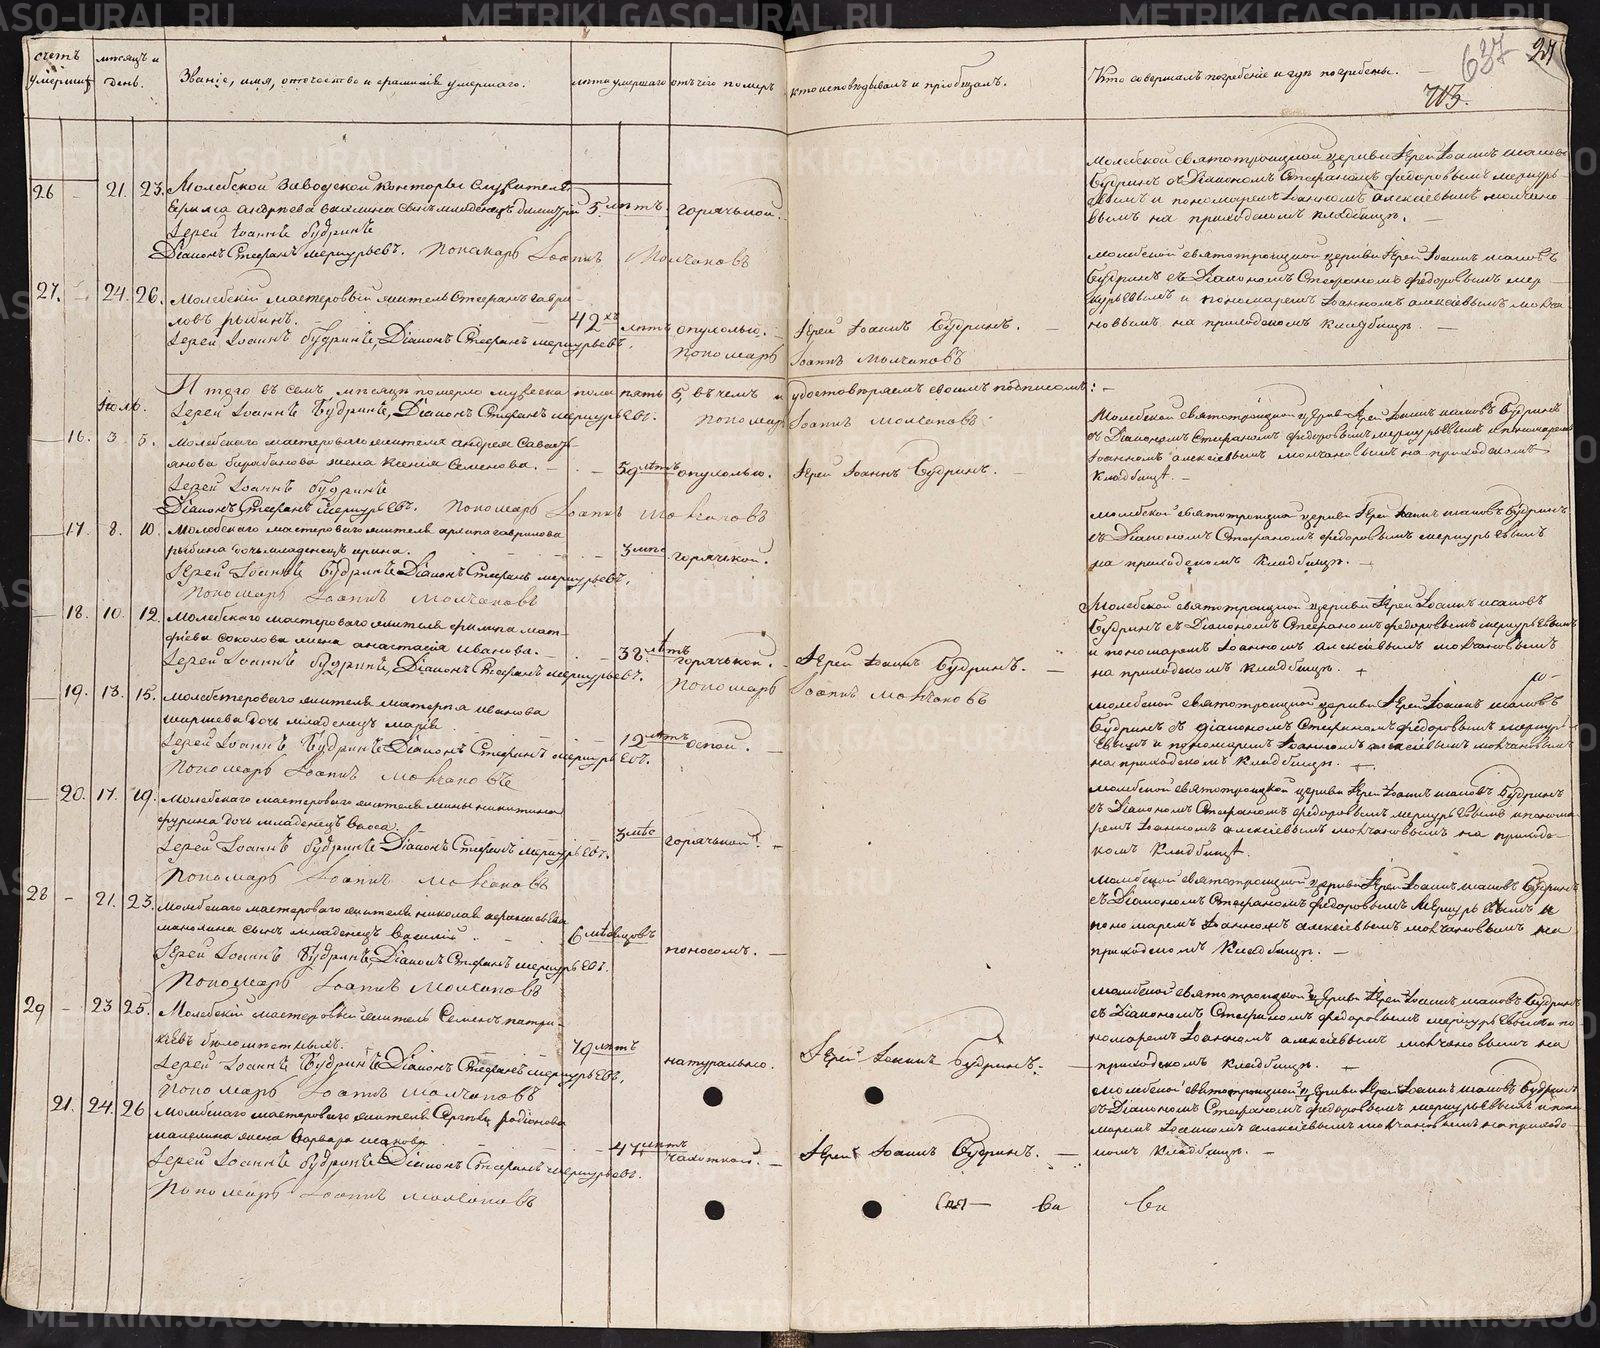 METRIKI.GASO-URAL.RU
счетъ умершихъ
мѣсяцъ и день.
Званіе, имя, отечество и фамилія умершаго.
лѣта умершаго
отъ чего померъ
кто исповѣдывалъ и пріобщалъ.
Кто совершалъ погребеніе и гдѣ погребены.
637 27
713.
26 - 21. 23. Молебской заводской конторы служителя
сынъ младенецъ Димитрій 5. лѣтъ горячькой.
Іерей Іоаннъ Будринъ
Діаконъ Стефанъ Меркурьевъ. Пономарь Іоаннъ Молчановъ
Молебской святотроицкой церкви Іерей Іоаннъ Исаковъ
Будринъ съ Діакономъ Стефаномъ Федоровымъ Меркурь-
евымъ и пономаремъ Іоанномъ Алексіевымъ Молчано-
вымъ на приходскомъ кладбищѣ.
27. - 24. 26. Молебскій мастеровый житель Стефанъ Гаври-
ловъ Рыбинъ. 42хъ лѣтъ опухолью. Іерей Іоаннъ Будринъ.
Іерей Іоаннъ Будринъ, Діаконъ Стефанъ Меркурьевъ.
Пономарь Іоаннъ Молчановъ
Молебской святотроицкой церкви Іерей Іоаннъ Исаковъ
Будринъ съ Діакономъ Стефаномъ Федоровымъ Мер-
курьевымъ и пономаремъ Іоанномъ Алексіевымъ Молча-
новымъ на приходскомъ кладбищѣ.
Итого въ семъ мѣсяцѣ померло мужеска пола пять 5, въ чемъ и удостовѣряемъ своимъ подписомъ:
Іерей Іоаннъ Будринъ, Діаконъ Стефанъ Меркурьевъ. Пономарь Іоаннъ Молчановъ
Іюль.
16. 3. 5. Молебского мастероваго жителя Андрея Савась-
янова Барабанова жена Ксенія Семенова. 59 лѣтъ опухолью. Іерей Іоаннъ Будринъ.
Іерей Іоаннъ Будринъ
Діаконъ Стефанъ Меркурьевъ. Пономарь Іоаннъ Молчановъ
Молебской святотроицкой церкви Іерей Іоаннъ Исаковъ Будринъ
съ Діакономъ Стефаномъ Федоровымъ Меркурьевымъ и пономаремъ
Іоанномъ Алексіевымъ Молчановымъ на приходскомъ
кладбищѣ.
17. 8. 10. Молебского мастероваго жителя Архипа Гаврилова
Рыбина дочь младенецъ Ирина. 3 горячькой.
Іерей Іоаннъ Будринъ Діаконъ Стефанъ Меркурьевъ.
Пономарь Іоаннъ Молчановъ
Молебской святотроицкой церкви Іерей Іоаннъ Исаковъ Будринъ
съ Діакономъ Стефаномъ Федоровымъ Меркурьевымъ
на приходскомъ кладбищѣ.
18. 10. 12. Молебского мастероваго жителя Филипа Мат-
фіева Соколова жена Анастасія Иванова. 38 лѣтъ горячькой. Іерей Іоаннъ Будринъ.
Іерей Іоаннъ Будринъ, Діаконъ Стефанъ Меркурьевъ.
Пономарь Іоаннъ Молчановъ
Молебской святотроицкой церкви Іерей Іоаннъ Исаковъ
Будринъ съ Діакономъ Стефаномъ Федоровымъ Меркурьевымъ
и пономаремъ Іоанномъ Алексіевымъ Молчановымъ
на приходскомъ кладбищѣ.
19. 13. 15. жителя Иванова
дочь младенецъ Марія 12 лѣтъ оспой.
Іерей Іоаннъ Будринъ Діаконъ Стефанъ Меркурьевъ.
Пономарь Іоаннъ Молчановъ
Молебской святотроицкой церкви Іерей Іоаннъ Исаковъ
Будринъ съ Діакономъ Стефаномъ Федоровымъ Меркурь-
евымъ и пономаремъ Іоанномъ Алексіевымъ Молчановымъ
на приходскомъ кладбищѣ.
20. 17. 19. Молебскаго мастероваго жителя Мины Никитина
Фурина дочь младенецъ Васса. 3 горячькой.
Іерей Іоаннъ Будринъ Діаконъ Стефанъ Меркурьевъ.
Пономарь Іоаннъ Молчановъ
Молебской святотроицкой церкви Іерей Іоаннъ Исаковъ Будринъ
съ Діакономъ Стефаномъ Федоровымъ Меркурьевымъ и понома-
ремъ Іоанномъ Алексіевымъ Молчановымъ на приходс-
комъ кладбищѣ.
28 - 21. 23. Молебскаго мастероваго жителя Николая
сынъ младенецъ Василій 6 мѣсяцовъ поносомъ.
Іерей Іоаннъ Будринъ, Діаконъ Стефанъ Меркурьевъ.
Пономарь Іоаннъ Молчановъ
Молебской святотроицкой церкви Іерей Іоаннъ Исаковъ Будринъ
съ Діакономъ Стефаномъ Федоровымъ Меркурьевымъ и
пономаремъ Іоанномъ Алексіевымъ Молчановымъ на
приходскомъ кладбищѣ.
29 - 23 25. Молебскій мастеровый житель Семенъ Патри-
кѣевъ 79 лѣтъ натурально. Іерей Іоаннъ Будринъ.
Іерей Іоаннъ Будринъ Діаконъ Стефанъ Меркурьевъ.
Пономарь Іоаннъ Молчановъ
Молебской святотроицкой церкви Іерей Іоаннъ Исаковъ Будринъ
съ Діакономъ Стефаномъ Федоровымъ Меркурьевымъ и по-
номаремъ Іоанномъ Алексіевымъ Молчановымъ на
приходскомъ кладбищѣ.
21. 24. 26 Молебскаго мастероваго жителя Сергѣя Родіонова
жена Варвара Исакова 47 лѣтъ чахоткой. Іерей Іоаннъ Будринъ.
Іерей Іоаннъ Будринъ Діаконъ Стефанъ Меркурьевъ.
Пономарь Іоаннъ Молчановъ
Молебской святотроицкой церкви Іерей Іоаннъ Исаковъ Будринъ
съ Діакономъ Стефаномъ Федоровымъ Меркурьевымъ и поно-
маремъ Іоанномъ Алексіевымъ Молчановымъ на приходс-
комъ кладбищѣ.